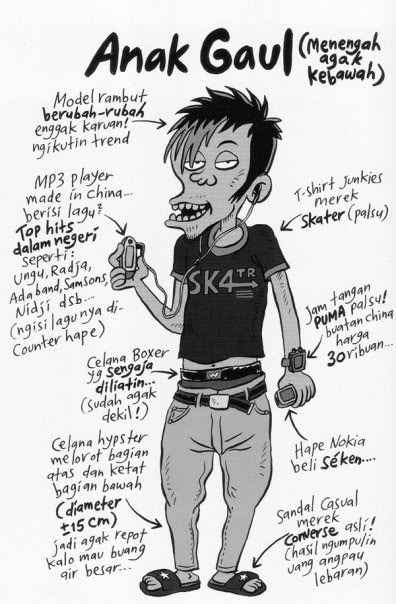 Anak Gaul
(Menengah
agak
kebawah)
Model rambut
berubah-rubah
enggak karuan!
ngikutin trend
MP3 player
made in China...
berisi lagu²
Top hits
dalam negeri
seperti:
ungu, Radja,
Ada band, Samsons,
Nidji dsb...
(ngisi lagunya di-
Counter hape)
T-shirt Junkies
merek
Skater (palsu)
SK4TR
Jam tangan
PUMA palsu!
buatan china
harga
30 ribuan...
Celana Boxer
yg sengaja
diliatin...
(sudah agak
dekil!)
W
Hape Nokia
beli séken....
Celana hypster
melorot bagian
atas dan ketat
bagian bawah
(diameter
±15 cm)
jadi agak repot
kalo mau buang
air besar...
Sandal Casual
merek
Converse asli!
(hasil ngumpulin
uang angpau
lebaran)